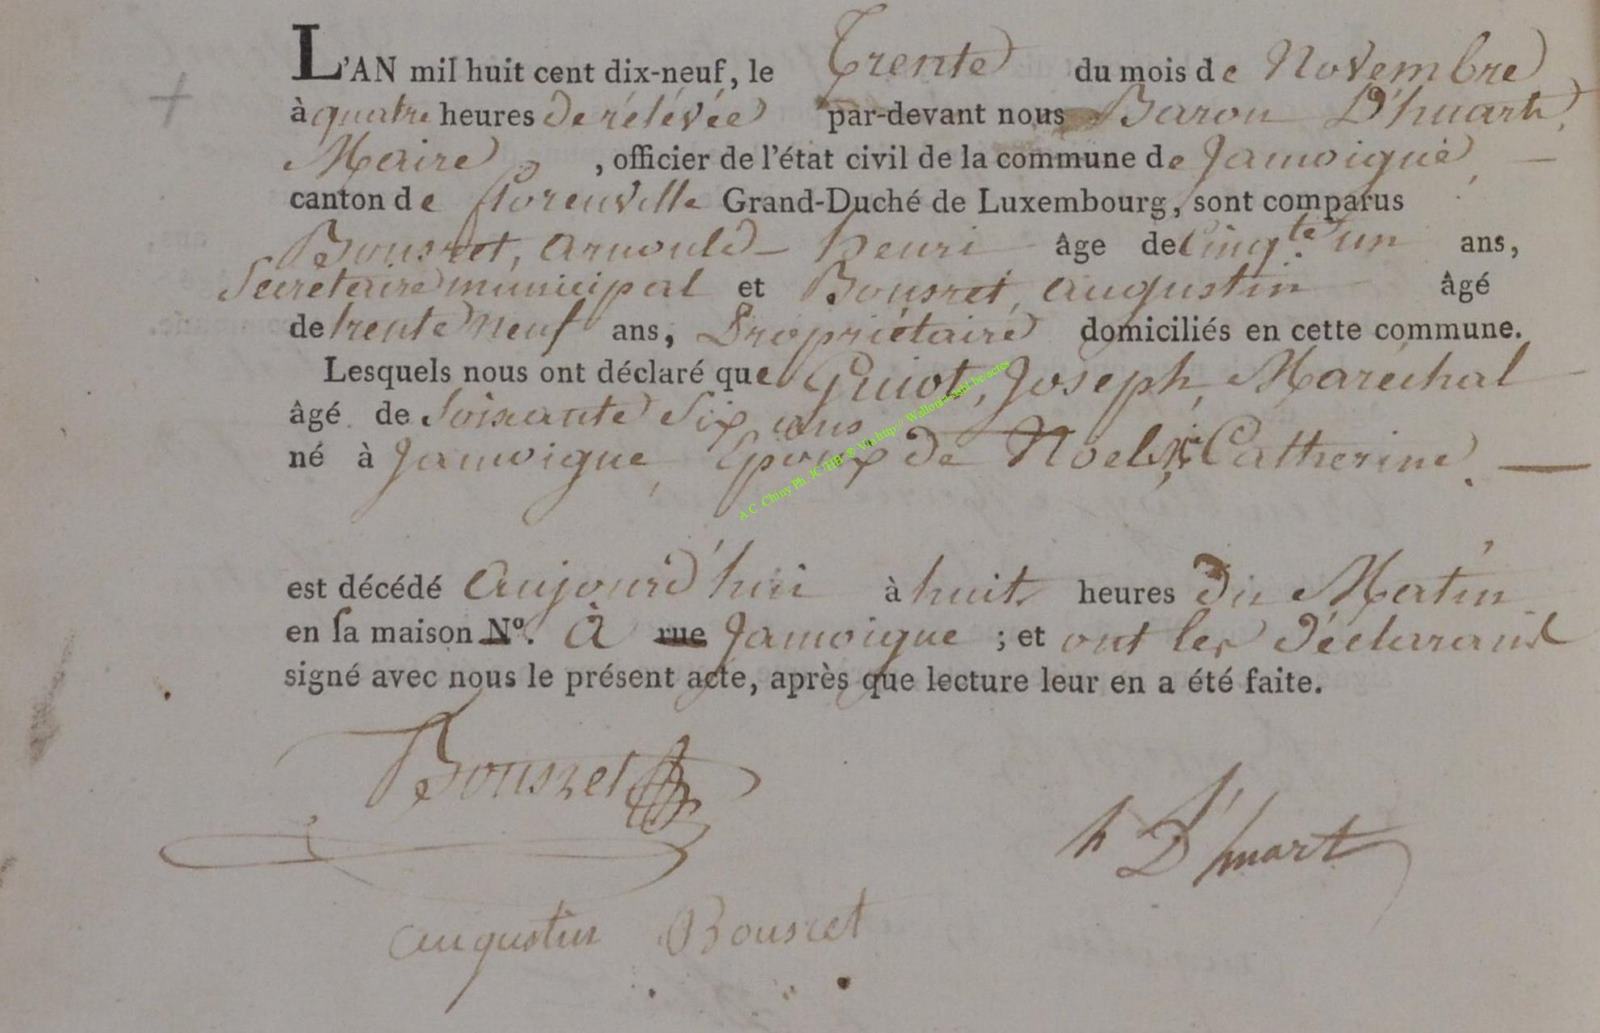 L'AN mil huit cent dix-neuf, le Trente du mois de Novembre
à quatre heures de rélévée par-devant nous Baron D'huart,
Maire, officier de l'état civil de la commune de Jamoigne,
canton de florenville Grand-Duché de Luxembourg, sont comparus
Bousret, arnould henri âge de Cinq.te un ans,
Secretaire municipal et Bousret, augustin âgé
de trente neuf ans, Propriétaire domiciliés en cette commune.
Lesquels nous ont déclaré que Guiot, Joseph, Maréchal
âgé de Soixante Six ans
né à Jamoigne, Epoux de Noel, Catherine.
est décédé aujourd'hui à huit heures du Matin
en sa maison N°. à rue Jamoigne ; et ont les déclarans
signé avec nous le présent acte, après que lecture leur en a été faite.
Bousret
h D'huart
augustin Bousret